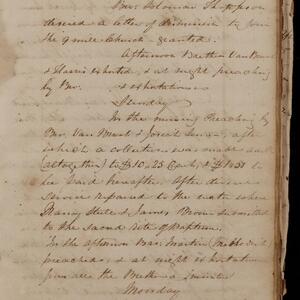 Bro. Solomon Thompson
desired a letter of dismission to join
the 9 mile Church. granted.
Afternoon Brethren Van
& Harris exhorted, & at night preaching
by Bro. & exhortations
Sunday
In the morning Preaching by
Bro. Van & Joseph after
which a collection was made
(altogether) to $10.25 Cash,
be paid hereafter. After divine
service repaired to the water where
Nancy & James Brown submitted
to the sacred rite of Baptism.
In the afternoon Bro. Martin (Methodist)
preached, & at night exhortation
from all the Brethren
Monday